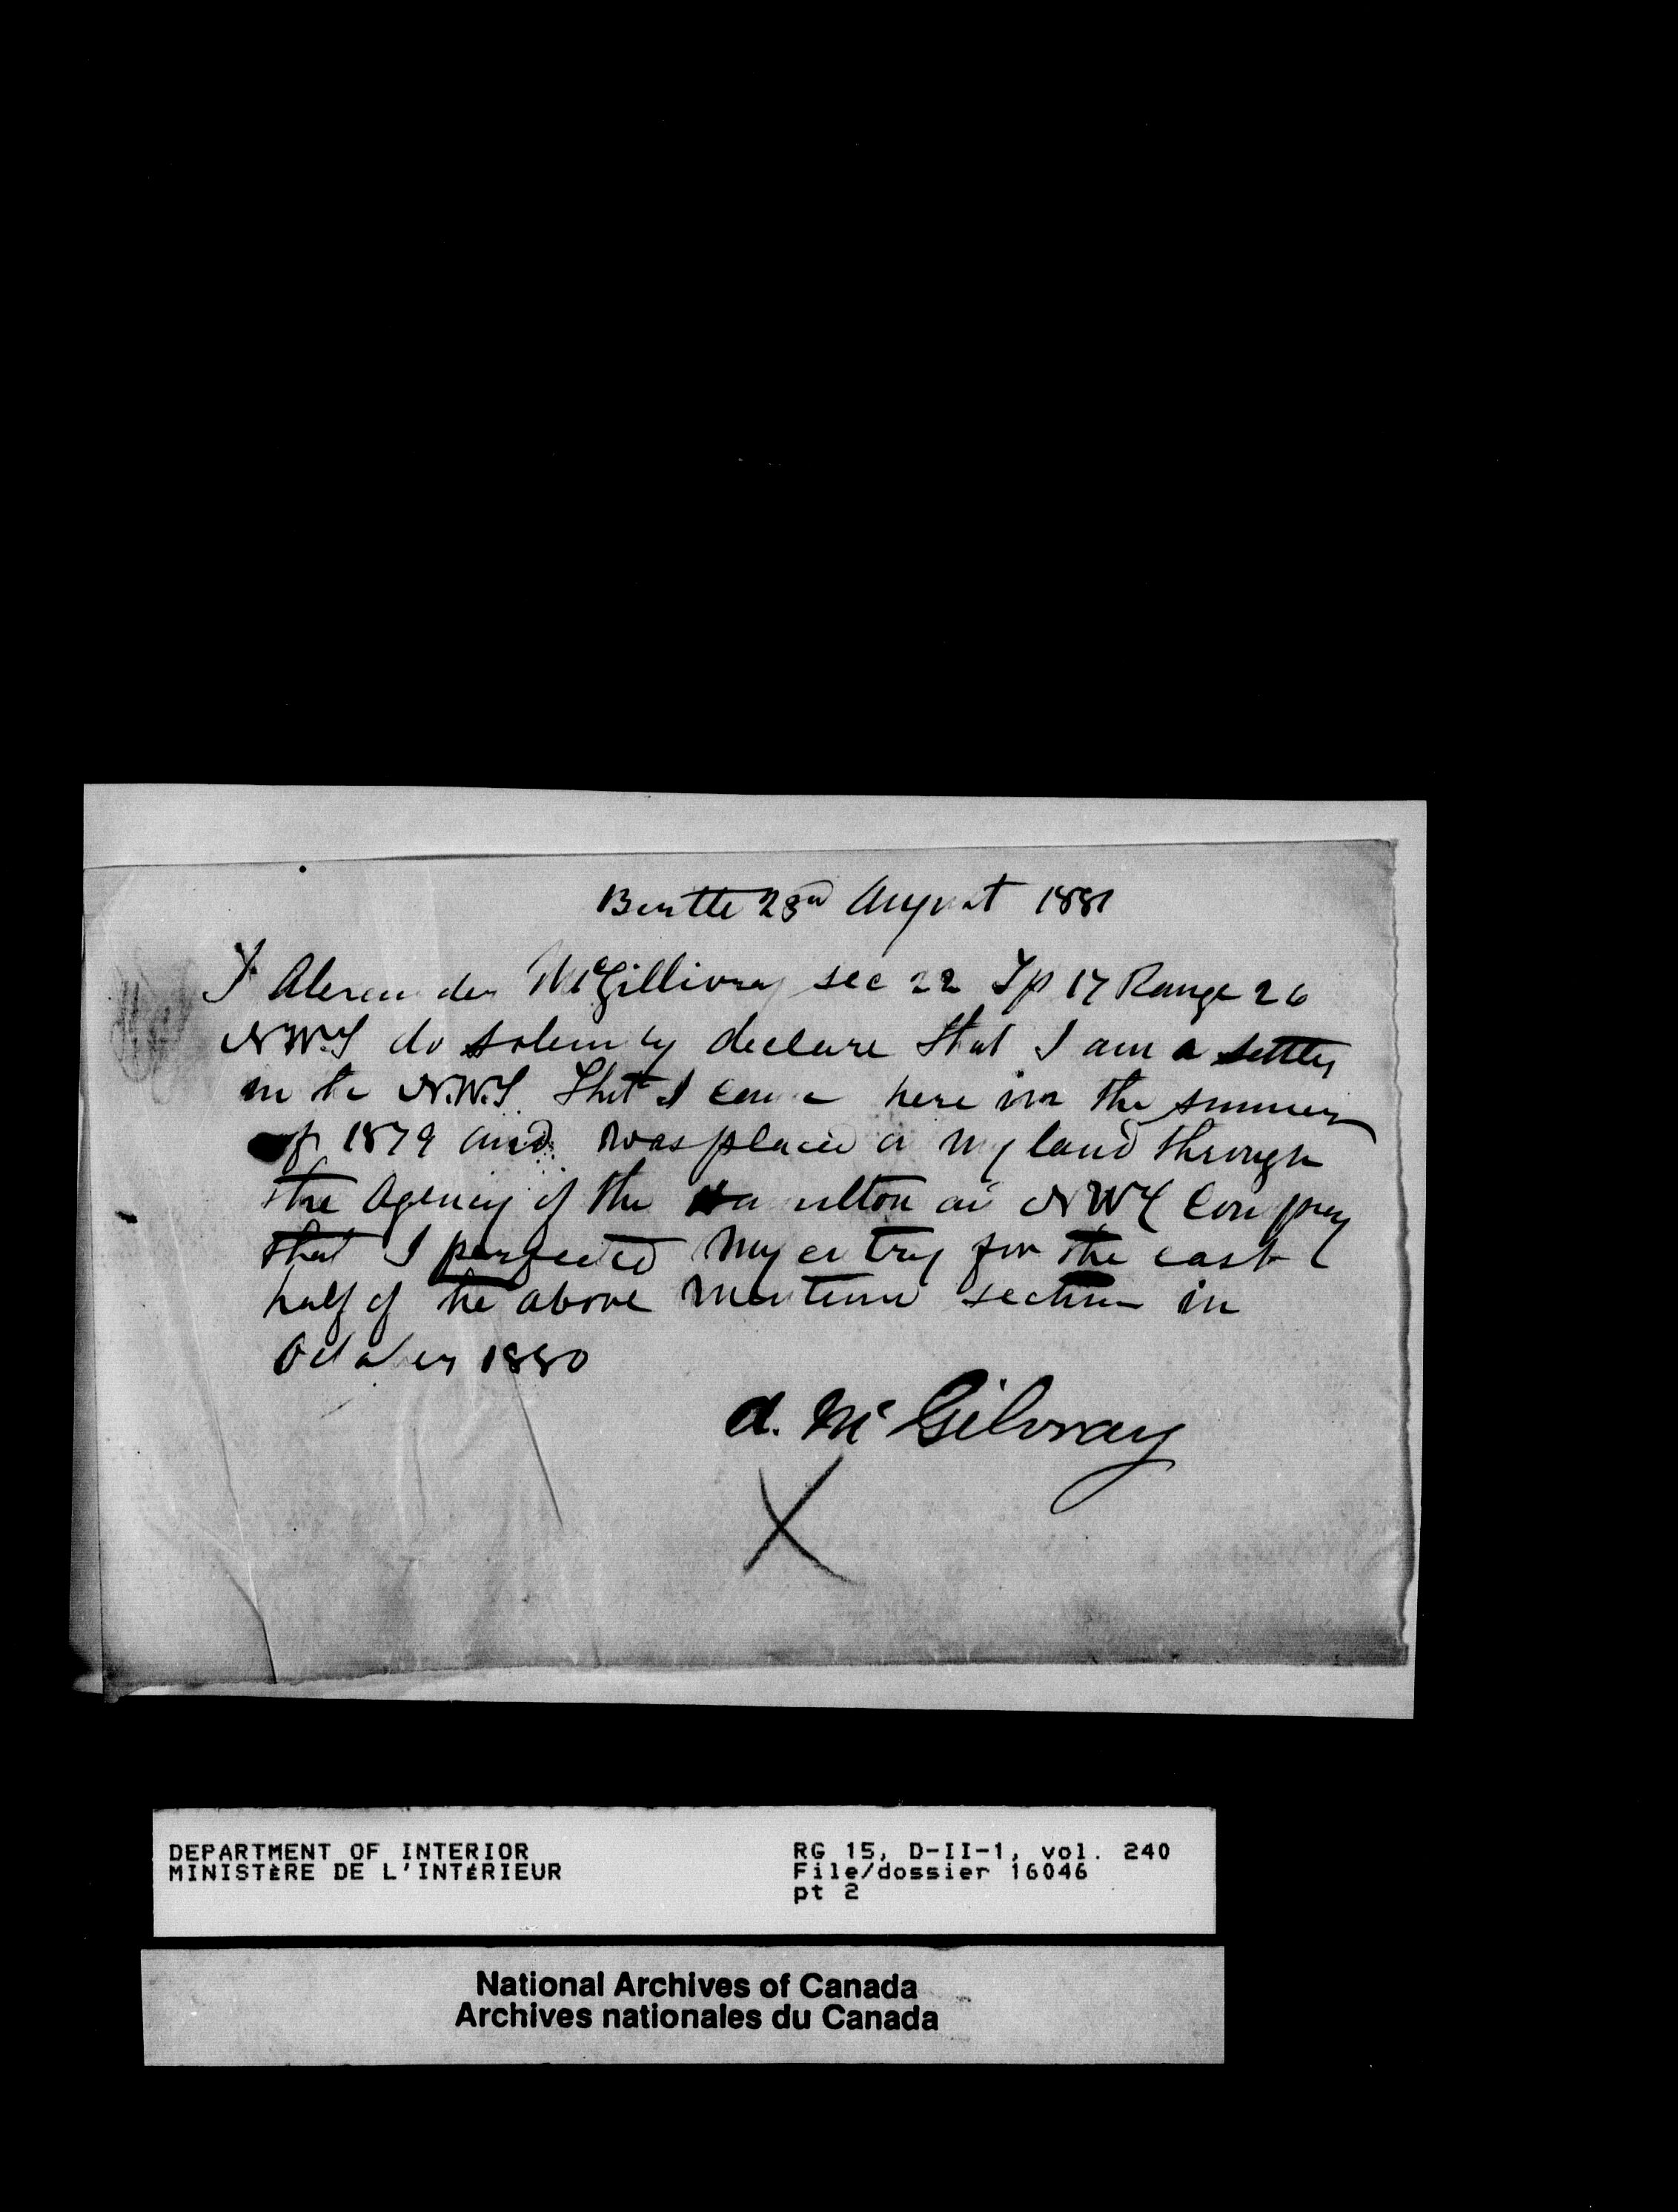 Birtle 23rd August 1881
I Alexander McGillivray sec 22 Tp 17 Range 26
N.W.T do solemnly declare that I am a settler
in the N.W.T. That I came here in the summer
of 1879 and was placed on my land through
the Agency of the Hamilton and NWT Company
that I perfected my entry for the east
half of the above mentioned section in
October 1880
A. McGilvray
X
DEPARTMENT OF INTERIOR
MINISTÈRE DE L'INTÉRIEUR
RG 15, D-II-1, vol. 240
File/dossier 16046
pt 2
National Archives of Canada
Archives nationales du Canada